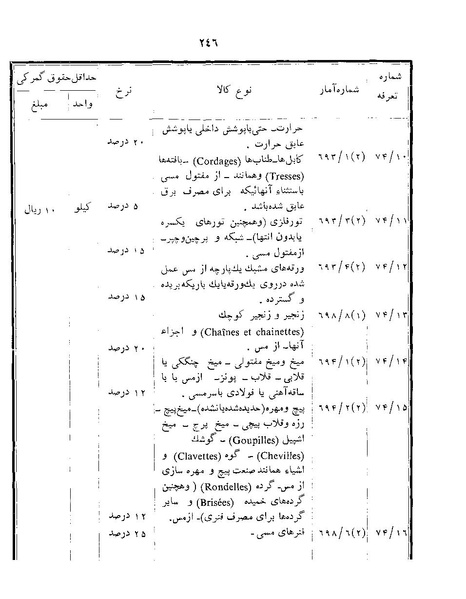 ٢٤٦
شماره تعرفه | شماره آمار | نوع کالا | نرخ | حداقل حقوق گمرکی: واحد | مبلغ
حرارت ـ حتی باپوشش داخلی یا پوشش
عایق حرارت . ٢٠ درصد
٧۴/١٠ ۶٩٣/١(٢) کابل‌ها ـ طناب‌ها (Cordages) ـ بافته‌ها
(Tresses) وهمانند ـ از مفتول مسی
باستثناء آنهائیکه برای مصرف برق
عایق شده‌باشد . ۵ درصد کیلو ١٠ ریال
٧۴/١١ ۶٩٣/٣(٢) تورفلزی (وهمچنین تورهای یکسره
یا بدون انتها) ـ شبکه و برچین وچپر ـ
ازمفتول مسی . ١۵ درصد
٧۴/١٢ ۶٩٣/۴(٢) ورقه‌های مشبک یك پارچه از مس عمل
شده در روی یك ورقه یا یك باریکه بریده
و گسترده . ١۵ درصد
٧۴/١٣ ۶٩٨/٨(٤) زنجیر و زنجیر کوچك
(Chaînes et chainettes) و اجزاء
آنها ـ از مس . ٢٠ درصد
٧۴/١۴ ۶٩۴/١(٢) میخ ومیخ مفتولی ـ میخ چنگکی یا
قلابی ـ قلاب ـ پونز ـ ازمس یا با
ساقه آهنی یا فولادی با سرمسی . ١٢ درصد
٧۴/١۵ ۶٩۴/٢(٢) پیچ ومهره (حدیده شده یا نشده) ـ میخ پیچ ـ
رزه وقلاب پیچی ـ میخ پرچ ـ میخ
اشپیل (Goupilles) ـ گوشك
(Chevilles) ـ گوه (Clavettes) و
اشیاء همانند صنعت پیچ و مهره سازی
از مس ـ گرده (Rondelles) (وهچنین
گرده‌های خمیده (Brisées) و سایر
گرده‌ها برای مصرف فنری) ـ ازمس. ١٢ درصد
٧۴/١۶ ۶٩٨/۶(٢) فنرهای مسی ـ ٢۵ درصد